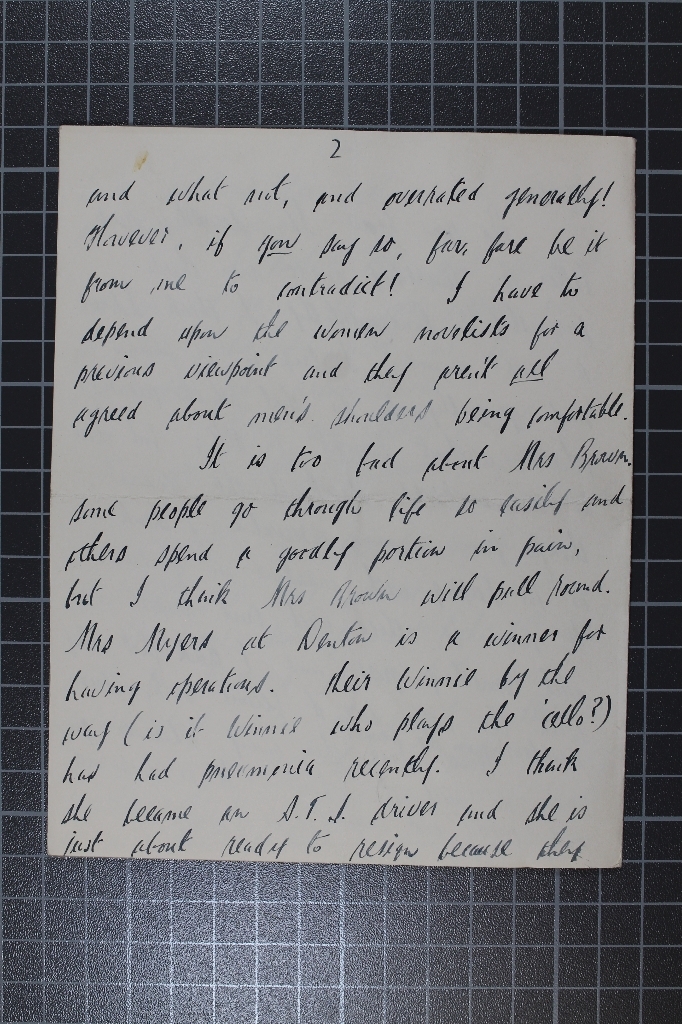 2
and what not, and overrated generally!
However, if you say so, far, fare be it
from me to contradict! I have to
depend upon the women novelists for a
previous viewpoint and they aren't all
agreed about men's shoulders being comfortable.
It is too bad about Mrs Brown.
some people go through life so easily and
others spend a goodly portion in pain,
but I think Mrs Brown will pull round.
Mrs Myers at Denton is a winner for
having operations. Their Winnie by the
way (is it Winnie who plays the 'cello?)
has had pneumonia recently. I think
she became an driver and she is
just about ready to resign because they